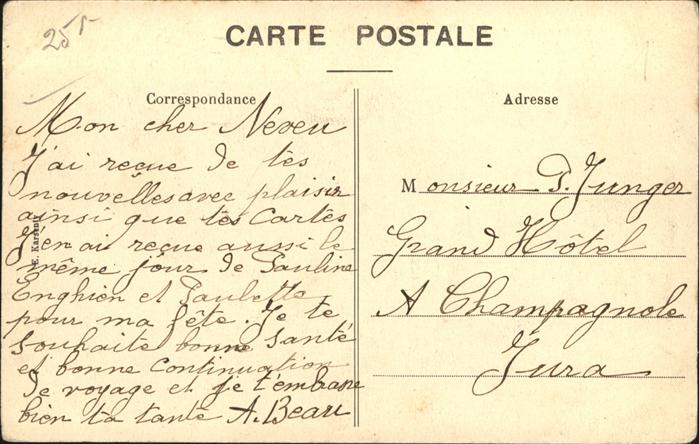 25
CARTE POSTALE
Correspondance
Mon cher Neveu
J'ai reçue de tes
nouvelles avec plaisir
ainsi que tes Cartes
J'en ai reçue aussi le
même jour de Pauline
Enghien et Paulette
pour ma fête. Je te
souhaite bonne santé
et bonne Continuation
de voyage et je t'embrasse
bien ta tante A. Beau
Adresse
Monsieur P. Junger
Grand Hôtel
A Champagnole
Jura